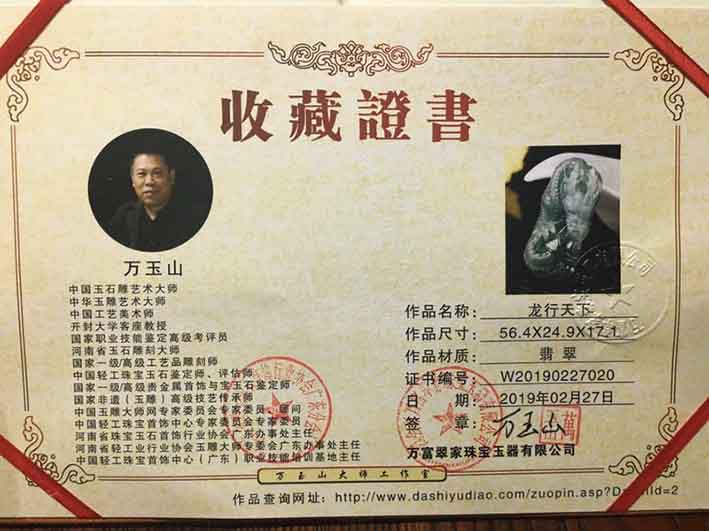 收藏證書
万玉山
中国玉石雕艺术大师
中华玉雕艺术大师
中国工艺美术师
开封大学客座教授
国家职业技能鉴定高级考评员
河南省玉石雕刻大师
国家一级/高级工艺品雕刻师
中国轻工珠宝玉石鉴定师、评估师
国家一级/高级贵金属首饰与宝玉石鉴定师
国家非遗(玉雕)高级技艺传承师
中国玉雕大师网专家委员会专家委员、顾问
中国轻工珠宝首饰中心专家委员会专家委员
河南省珠宝玉石首饰行业协会广东办事处主任
河南省轻工业行业协会玉雕大师专委会广东办事处主任
中国轻工珠宝首饰中心(广东)职业技能培训基地主任
作品名称: 龙行天下
作品尺寸: 56.4X24.9X17.1
作品材质: 翡翠
证书编号: W20190227020
日期: 2019年02月27日
签章: 万玉山
万富翠家珠宝玉器有限公司
万玉山大师工作室
作品查询网址: http://www.dashiyudiao.com/zuopin.asp?D
Id=2